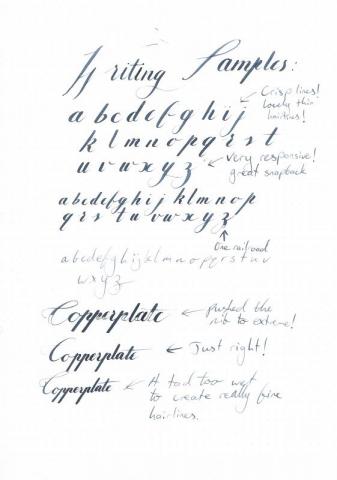 Writing Samples:
a b c d e f g h i j
Crisp lines!
Lovely thin
hairlines!
k l m n o p q r s t
u v w x y z
very responsive!
great snapback
a b c d e f g h i j k l m n o p
q r s t u v w x y z
One railroad
a b c d e f g h i j k l m n o p q r s t u v
w x y z
Copperplate ← pushed the
nib to extreme!
Copperplate ← Just right!
Copperplate ← A tad too wet
to create really fine
hairlines.